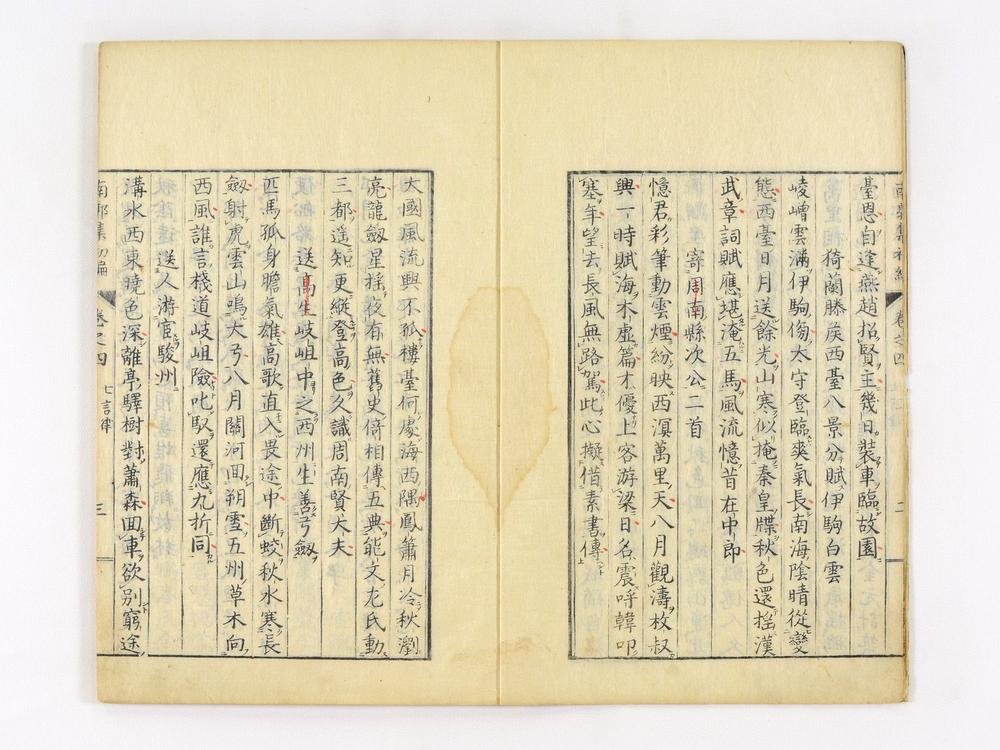 臺恩自逢燕趙招賢主幾日裝車臨故園
猗蘭滕侯西臺八景分賦伊駒白雲
崚嶒雲滿伊駒傍大守登臨爽氣長南海陰晴從變
態西臺日月送餘光山寒似掩秦皇牒秋色還搖漢
武章詞賦應堪淹五馬風流憶昔在中郎
寄周南縣次公二首
憶君彩筆動雲煙紛映西溟萬里天八月觀濤枚叔
興一時賦海木虛篇才優上客游梁日名震呼韓叩
塞年望去長風無路駕此心擬借素書傳
大國風流興不孤樓臺何處海西隅鳳簫月冷秋瀏
亮龍劔星搖夜有無舊史倚相傳五典能文左氏動
三都遥知更縱登高色久識周南賢大夫
送高生岐岨中之西州生善弓劔
匹馬孤身膽氣雄高歌直入畏途中斷蛟秋水寒長
劔射虎雲山鳴大弓八月關河回朔雪五州草木向
西風誰言棧道岐岨險叱馭還應九折同
送人游宦駿州
溝水西東曉色深離亭驛樹對蕭森回車欲別窮途
南郭集初編 卷之四 七言律 三